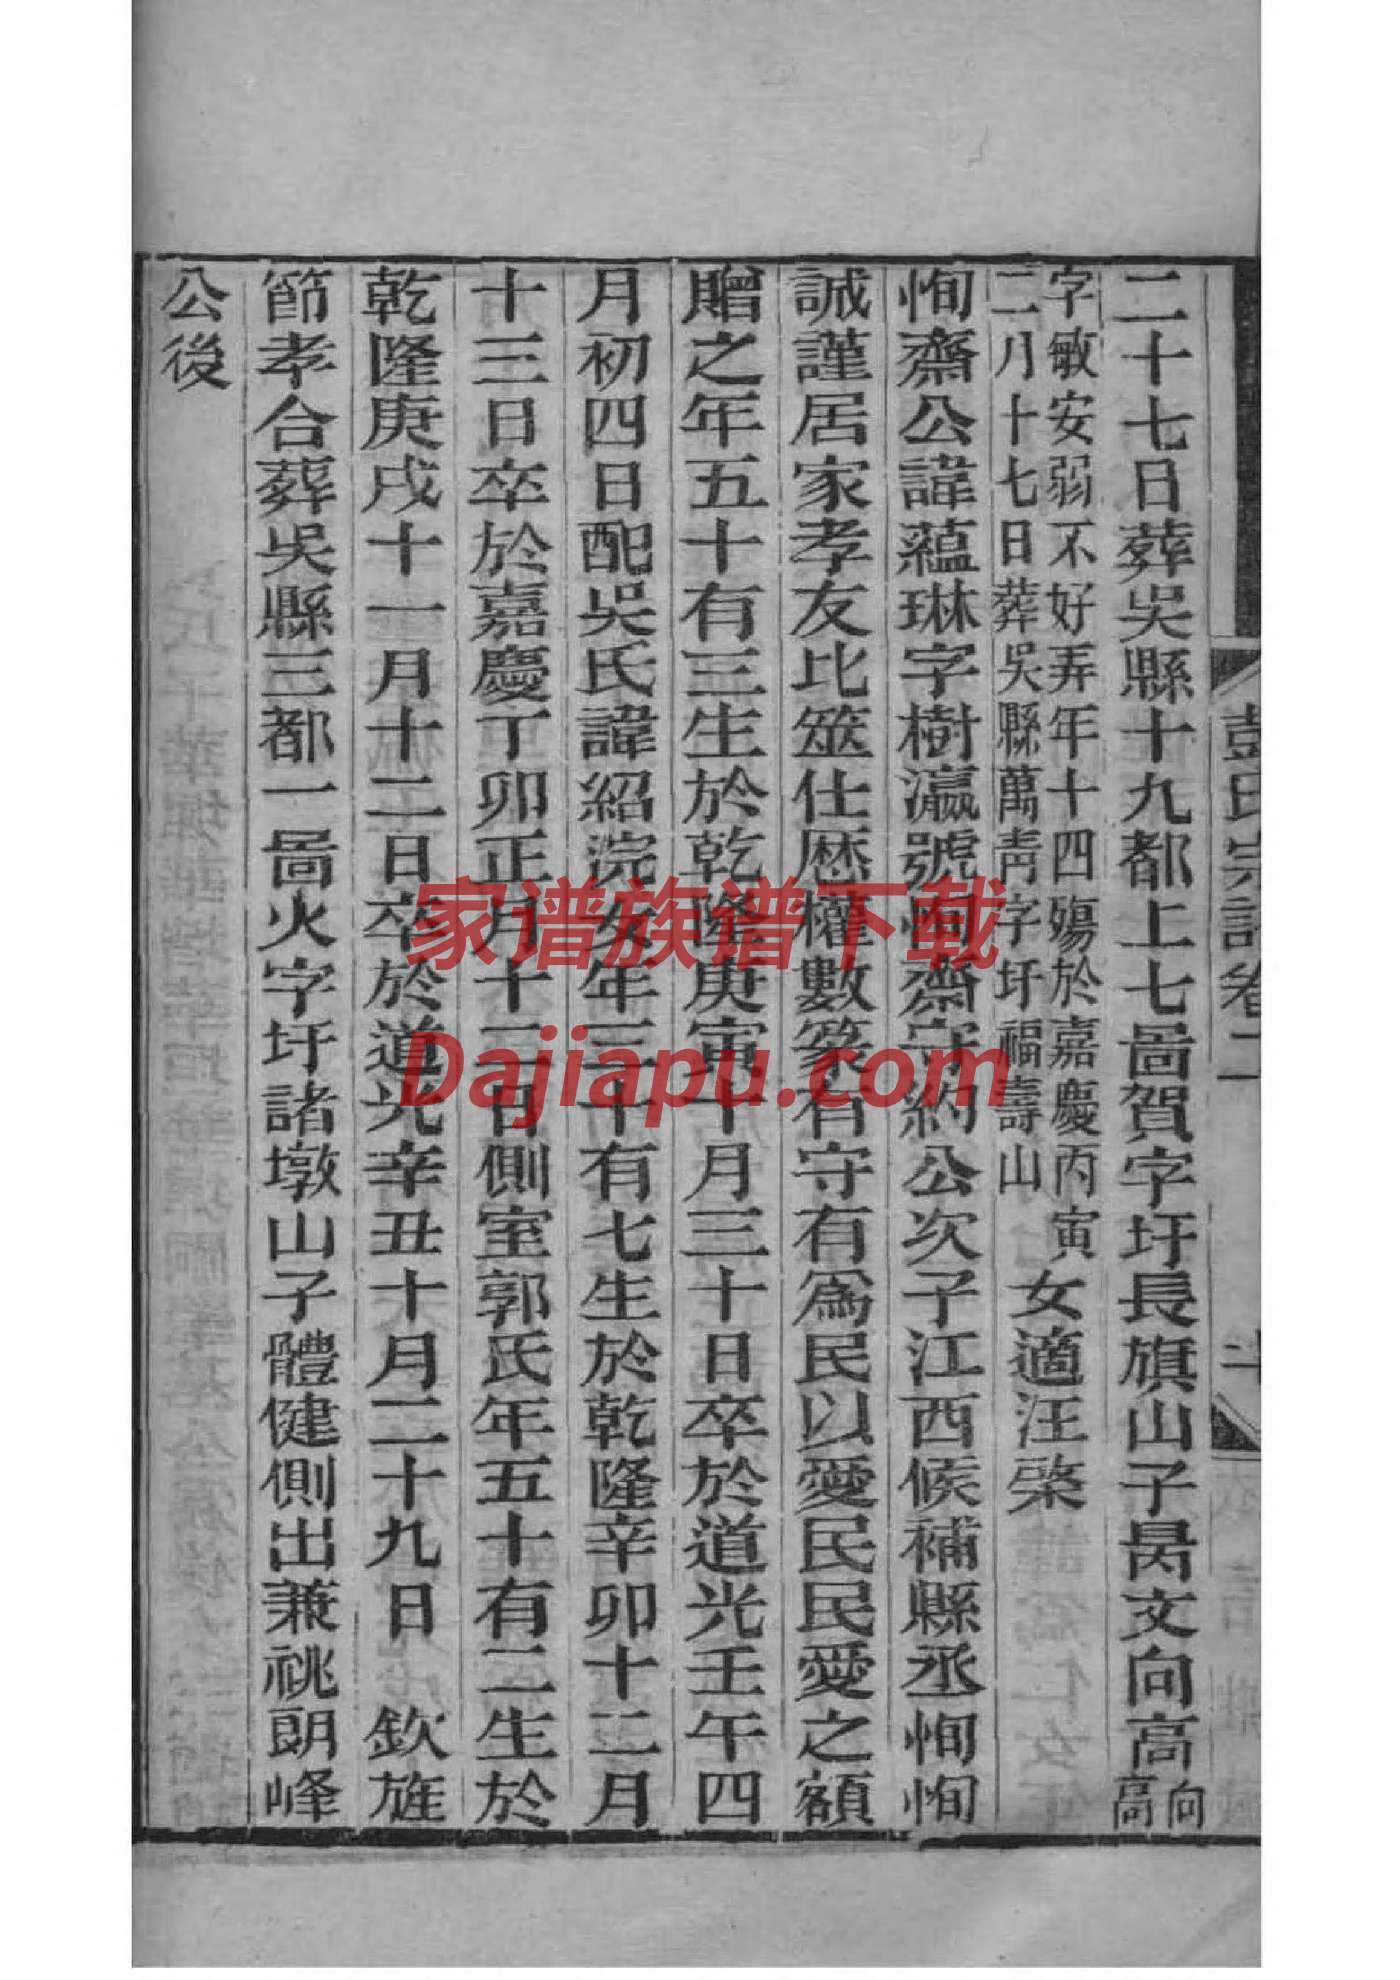 彭氏宗譜卷二
二十七日葬吳縣十九都上七啚賀字圩長旗山子昺文向高向高
字敏安弱不好弄年十四殤於嘉慶丙寅
二月十七日葬吳縣萬青字圩福壽山
女適汪棨
恂齋公諱蘊琳字樹瀛號恂齋守約公次子江西候補縣丞恂恂
誠謹居家孝友比筮仕歷權數篆有守有爲民以愛民民愛之額
贈之年五十有三生於乾隆庚寅十月三十日卒於道光壬午四
月初四日配吳氏諱紹浣女年三十有七生於乾隆辛卯十二月
十三日卒於嘉慶丁卯正月十二日側室郭氏年五十有二生於
乾隆庚戌十一月十二日卒於道光辛丑十月二十九日 欽旌
節孝合葬吳縣三都一啚火字圩諸墩山子體健側出兼祧朗峰
公後
家谱族谱下载
Dajiapu.com